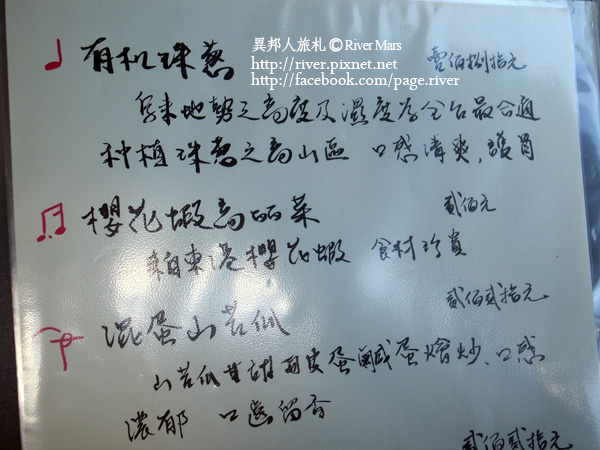 異邦人旅札 © River Mars
http://river.pixnet.net
http://facebook.com/page.river
有机珠葱 壹佰捌拾元
烏來地勢之高度及濕度為全台最合適
种植珠葱之高山區 口感清爽，護胃
櫻花蝦高麗菜 貳佰元
來自東港櫻花蝦 食材珍貴
貳佰貳拾元
混蛋山苦瓜
山苦瓜甘甜 皮蛋鹹蛋燴炒、口感
濃郁 口齒留香
貳佰貳拾元